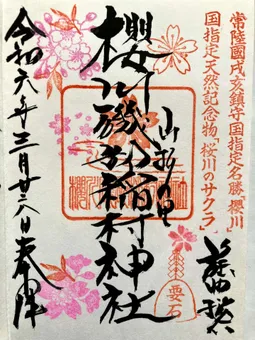 常陸國戌亥鎮守国指定名勝「櫻川」
国指定天然記念物「桜川のサクラ」
山桜の里
櫻川磯部稲村神社
令和六年三月廿六日奉拝
要石